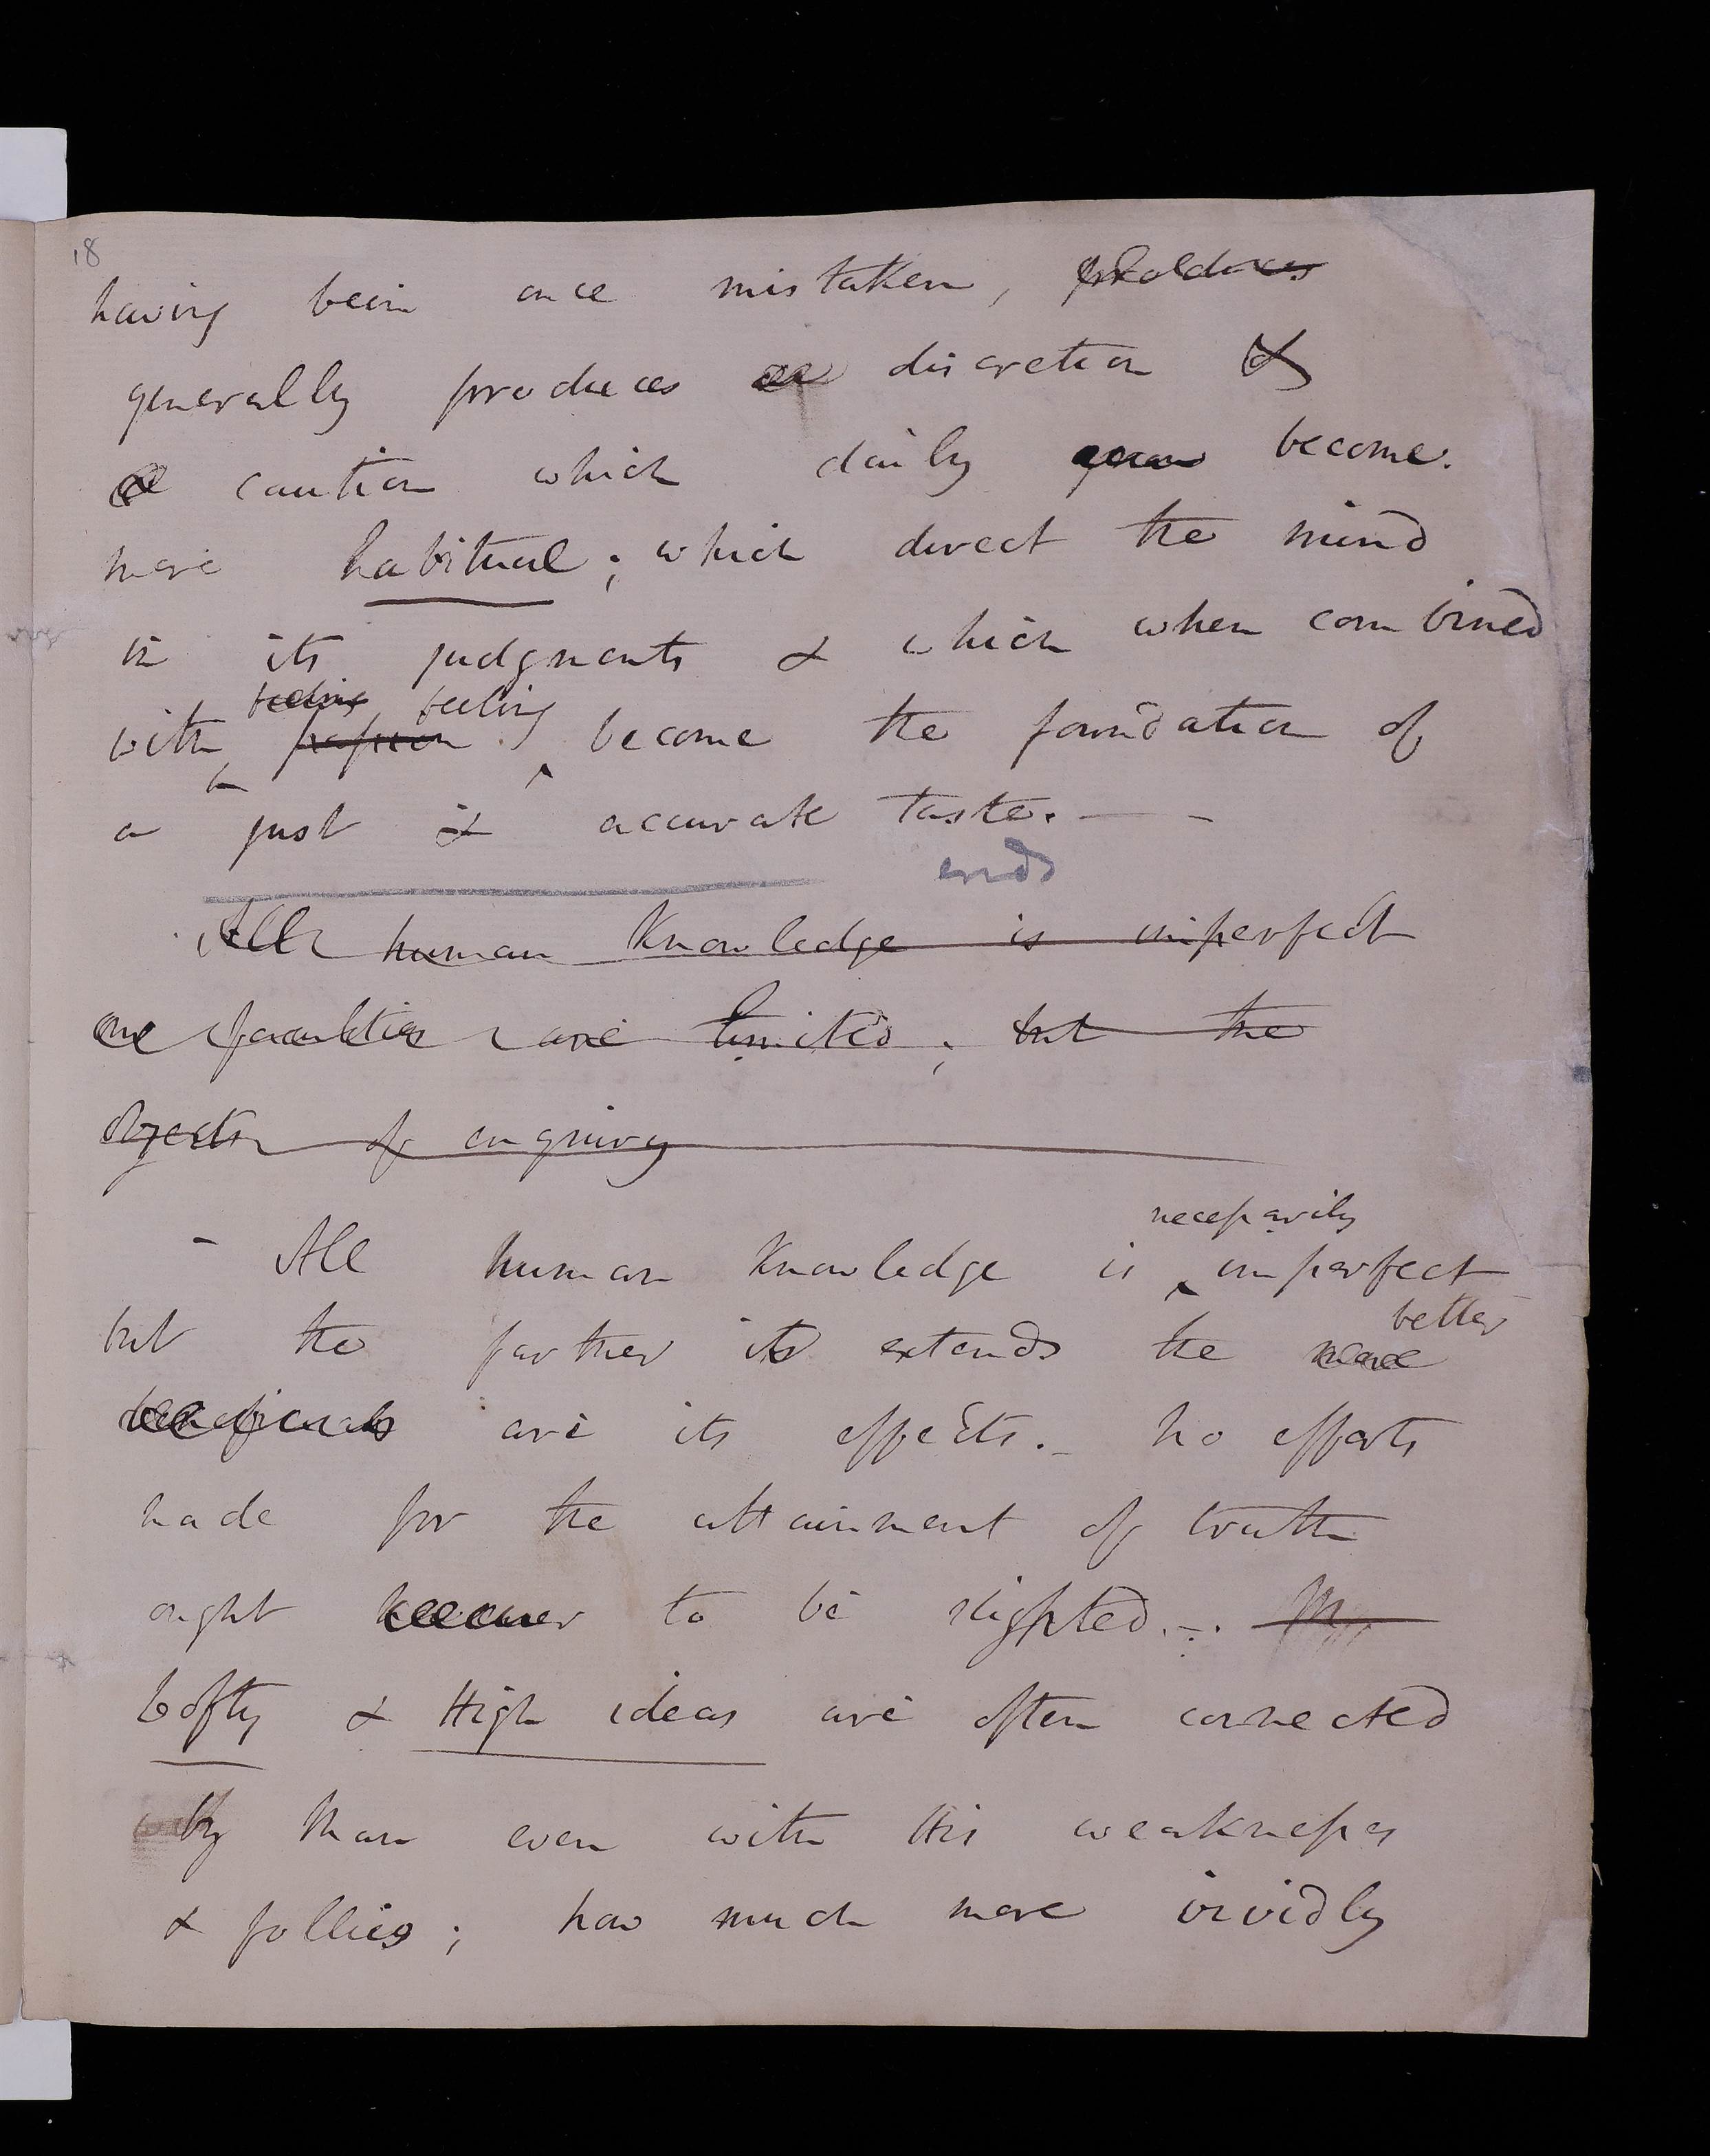 18
having been once mistaken, produces
generally produces a discretion &
a caution which daily become
more habitual; which direct the mind
in its judgments & which when combined
feeling feeling
with passion become the foundation of
a just & accurate taste. —
ends
All human Knowledge is imperfect
our faculties are limited; but the
objects of enquiry
necessarily
- All human Knowledge is ^ imperfect
better
but the farther it extends the more
beneficial are its effects. - No efforts
made for the attainment of truth
ought to be slighted. -
Lofty & High ideas are often connected
by Man even with His weaknesses
& follies; how much more vividly